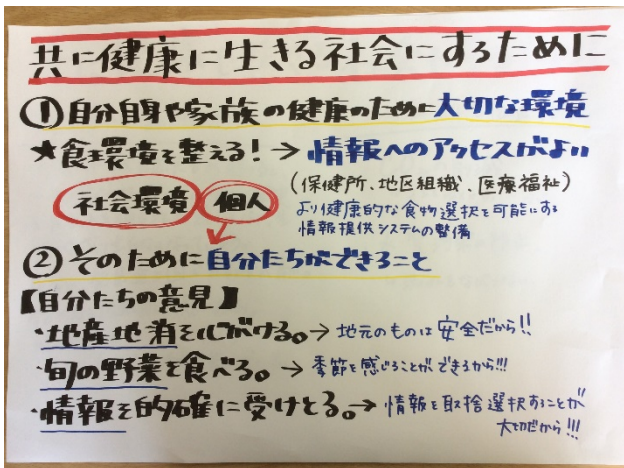 共に健康に生きる社会にするために
①自分自身や家族の健康のために大切な環境
★食環境を整える! → 情報へのアクセスがよい
社会環境 個人 (保健所、地区組織、医療福祉)
より健康的な食物選択を可能にする
情報提供システムの整備
②そのために自分たちができること
【自分たちの意見】
・地産地消を心がける。→ 地元のものは安全だから!!
・旬の野菜を食べる。→ 季節を感じることができるから!!!
・情報を的確に受けとる。→ 情報を取捨選択することが
大切だから!!!